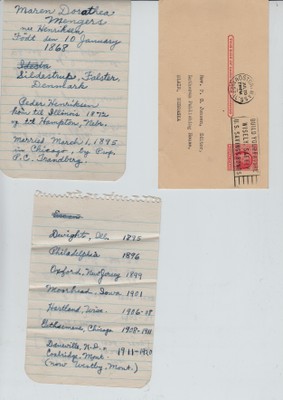 Maren Dorothea
Mengers
née Henriksen
Födt den 10 January
1868
Sildestrup, Falster,
Denmark
Peder Henriksen
kom til Illinois 1872
og til Hampton, Nebr.
Married March 1, 1895
in Chicago, by Prof.
P.C. Trandberg.
Rev. P. C. Jensen, Editor,
Lutheran Publishing House,
BLAIR, NEBRASKA
BUILD YOUR FUTURE
WISELY
U.S. SAVINGS
Dwight, Ill. 1895
Philadelphia 1896
Oxford, New Jersey 1899
Moorhead, Iowa 1901
Hartland, Wisc. 1906-08
Bethania, Chicago 1908-1911
Daneville, N.D. &
Coalridge, Mont. 1911-1920
(now Westby, Mont.)